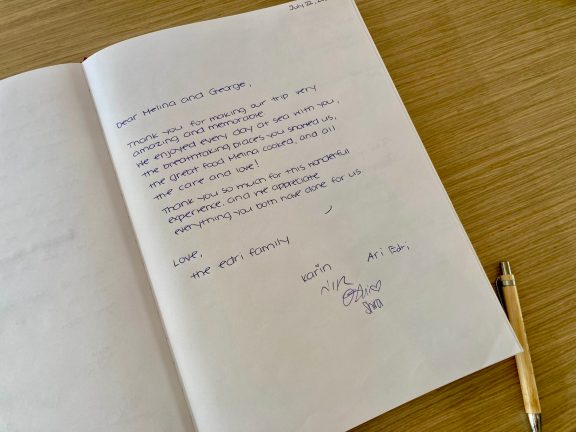 July 22,
Dear Melina and George,
Thank you for making our trip very
amazing and memorable
We enjoyed every day at sea with you,
the breathtaking places you showed us,
the great food Melina cooked, and all
the care and love!
Thank you so much for this wonderful
experience, and we appreciate
everything you both have done for us.
Love,
the edri family
Karin
Ari Edri,
NIR